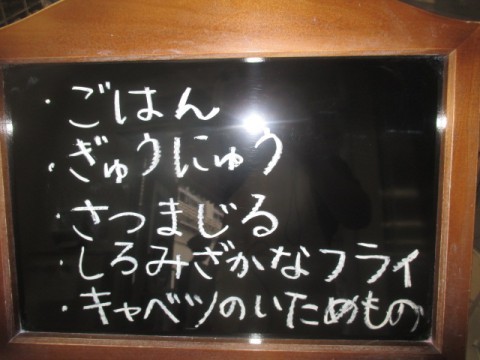 ・ごはん
・ぎゅうにゅう
・さつまじる
・しろみざかなフライ
・キャベツのいためもの